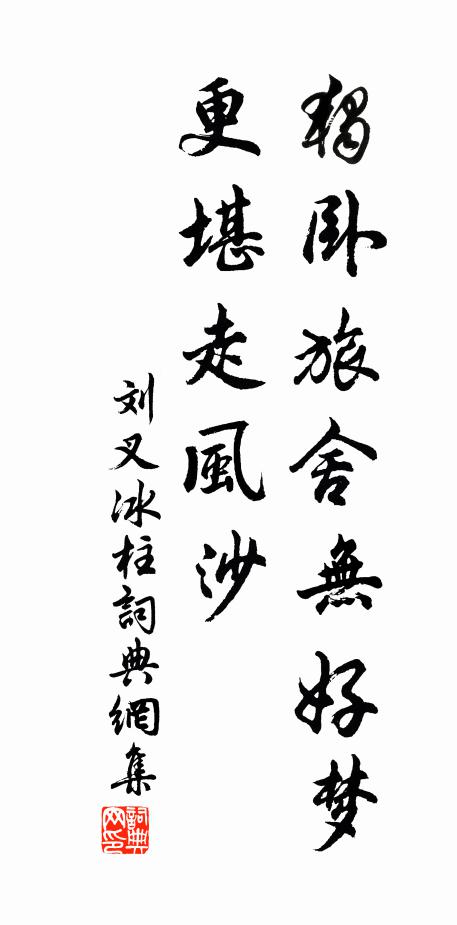 獨卧旅舍無好梦
更堪走風沙
刘叉冰柱詞典網集
詞典
网印